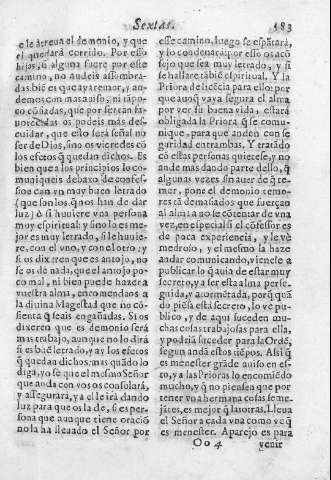 Sextas. 183
e le atreua el demonio, y que
el quedarà corrido. Por esso
hijas, si alguna fuere por este
camino, no andeis assombra-
das biẽ es que aya temor, y an-
demos con mas auiso, ni tãpo-
co cõfiadas, que por ser tan fa-
uorecidas os podeis mas des-
cuidar, que esto serà señal no
ser de Dios, sino os vieredes cõ
los efetos q̃ quedan dichos. Es
bien que a los principios lo co-
muniqueis debaxo de confes-
sion con vn muy buen letrado
(que son los q̃ nos han de dar
luz) ò si huuiere vna persona
muy espiritual: y sino lo es me-
jor es muy letrado, si le huuie-
re, con el vno, y con el otro: y
si os dixeren que es antojo, no
se os dè nada, que el antojo po-
co mal, ni bien puede hazer a
vuestra alma, encomendaos a
la diuina Magestad que no cõ-
sienta q̃ seais engañadas. Si os
dixeren que es demonio serà
mas trabajo, aunque no lo dirà
si es buẽ letrado, y ay los efetos
q̃ quedan dichos, mas quãdo lo
diga, yo sè que el mesmo Señor
que anda con vos os consolarà,
y assegurarà, y a el le irà dando
luz para que os la dè, si es per-
sona que aunque tiene oracion
no la ha lleuado el Señor por
esse camino, luego se espãtarà,
y lo condenarà: por esso os acõ
sejo que sea muy letrado, y si
se hallare tãbiẽ espiritual. Y la
Priora dè licẽcia para ello: por
que aunq̃ vaya segura el alma
por ver su buena vida, estarà
obligada la Priora q̃ se comu-
nique, para que anden con se
guridad entrambas. Y tratado
cõ estas personas quietese, y no
ande mas dando parte dello, q̃
algunas vezes sin auer de q̃ te-
mer, pone el demonio temo-
res tã demasiados que fuerçan
al alma a no se cõtentar de vna
vez, en especial si el cõfessor es
de poca experiencia, y le vè
medroso, y el mesmo la haze
andar comunicando, vienese a
publicar lo q̃ auia de estar muy
secreto, y a ser esta alma perse-
guida, y atormẽtada, porq̃ quã
do piensa q̃ està secreto, lo vè pu
blico, y de aqui suceden muchas
cosas trabajosas para ella,
y podriã suceder para la Ordẽ,
segun andã estos tiẽpos. Assi q̃
es menester grãde auiso en es-
to, y a las Prioras lo encomiẽdo
mucho, y q̃ no piensen que por
tener vna hermana cosas seme-
jãtes, es mejor q̃ las otras. Lleua
el Señor a cada vna como vè q̃
es menester. Aparejo es para
Oo 4 venir